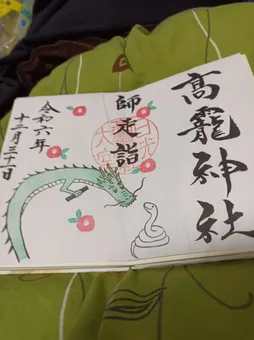 高龗神社
師走詣
令和六年
十二月三十一日